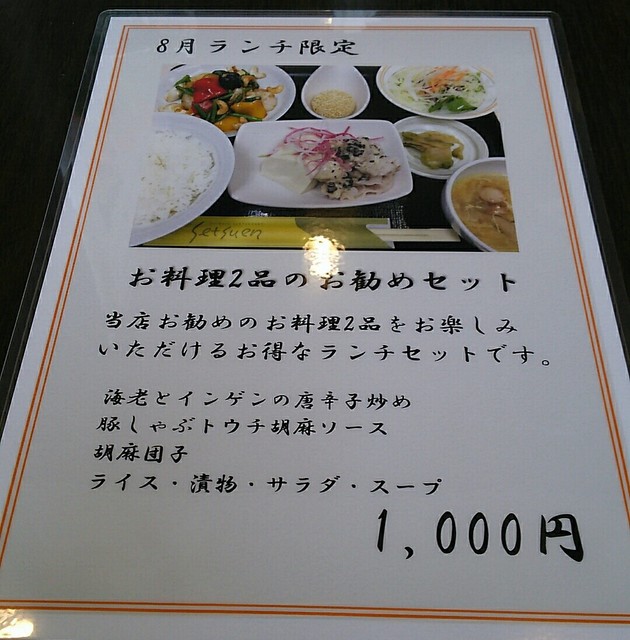 8月ランチ限定
setsuen
お料理2品のお勧めセット
当店お勧めのお料理2品をお楽しみ
いただけるお得なランチセットです。
海老とインゲンの唐辛子炒め
豚しゃぶトウチ胡麻ソース
胡麻団子
ライス・漬物・サラダ・スープ
1,000円